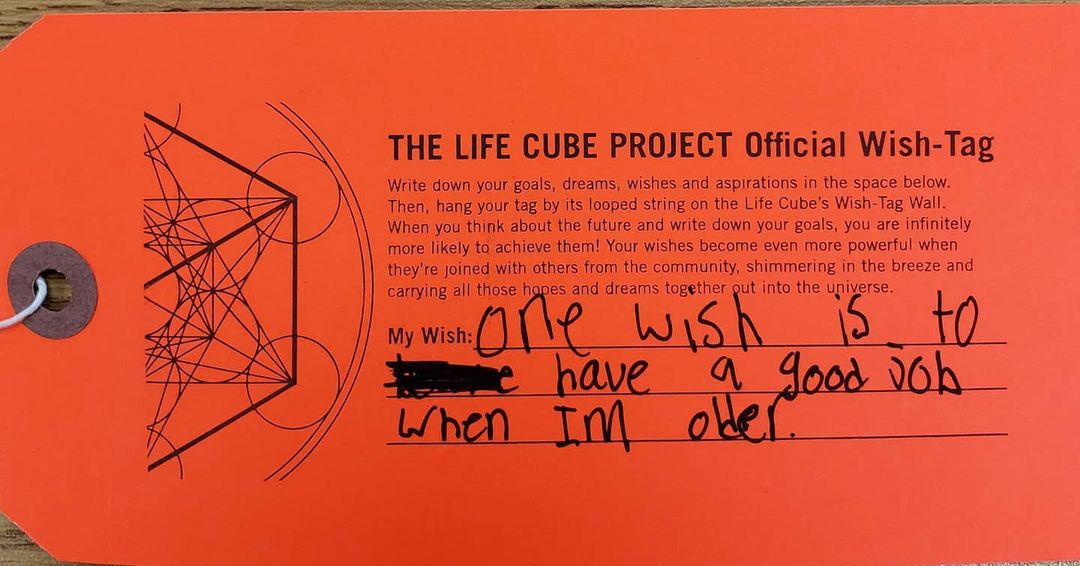 THE LIFE CUBE PROJECT Official Wish-Tag
Write down your goals, dreams, wishes and aspirations in the space below.
Then, hang your tag by its looped string on the Life Cube's Wish-Tag Wall.
When you think about the future and write down your goals, you are infinitely
more likely to achieve them! Your wishes become even more powerful when
they're joined with others from the community, shimmering in the breeze and
carrying all those hopes and dreams together out into the universe.
My Wish: One wish is to
have a good job
when Im older.